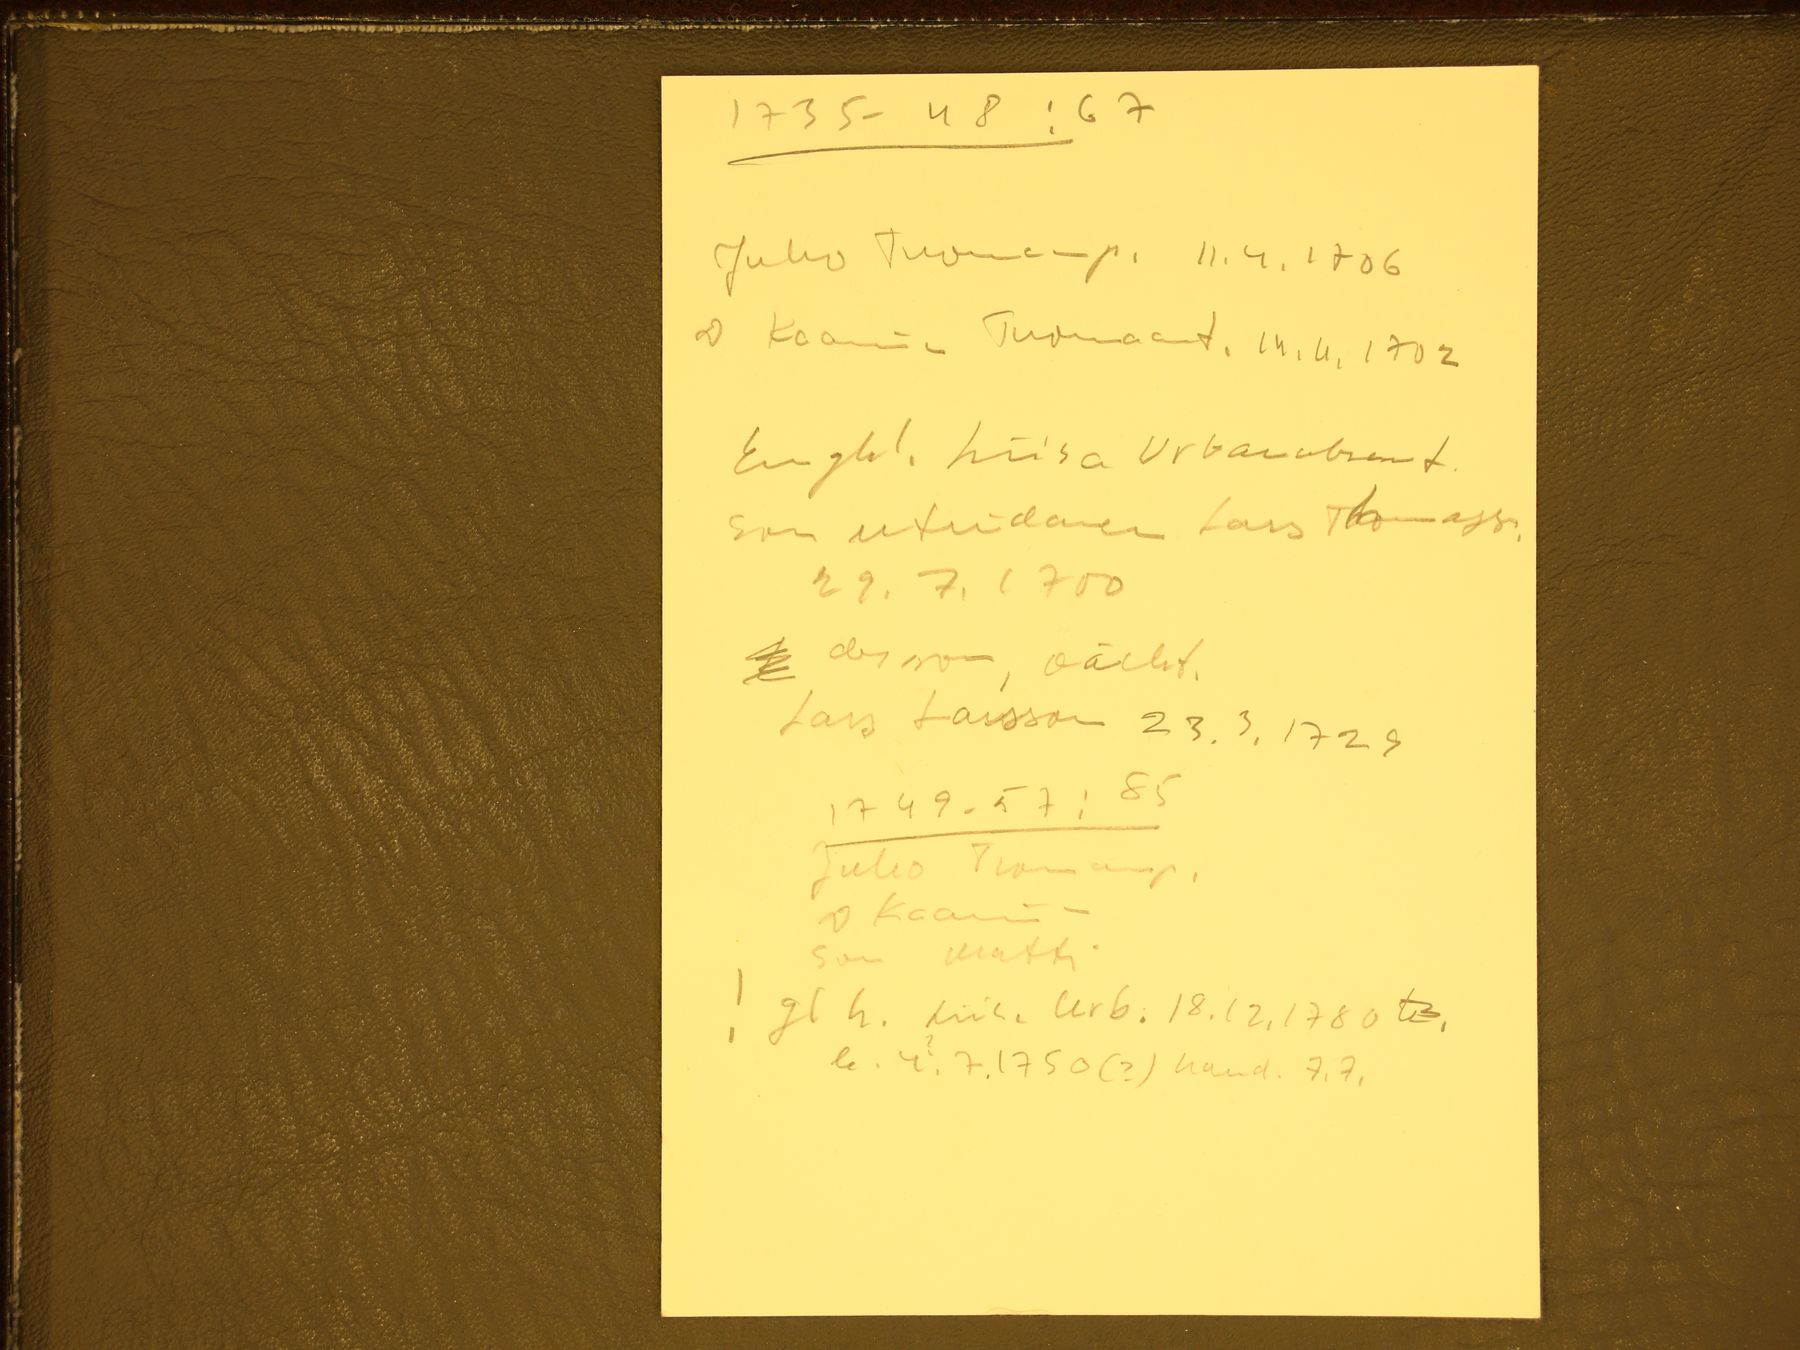 1735-48:67
Juho Tuomanp. 11.4.1706
Kaarin Tuomaant. 14.11.1702
Liisa Urbanabrant.
son Lars Thomass.
29.7.1700
dess son, vächt.
Lars Larsson 23.3.1729
1749-57:85
Juho Tuomanp.
Kaarin
son Matti
! gl h. Liisa Urb. 18.12.1780
4?.7.1750(?) haud. 7.7.